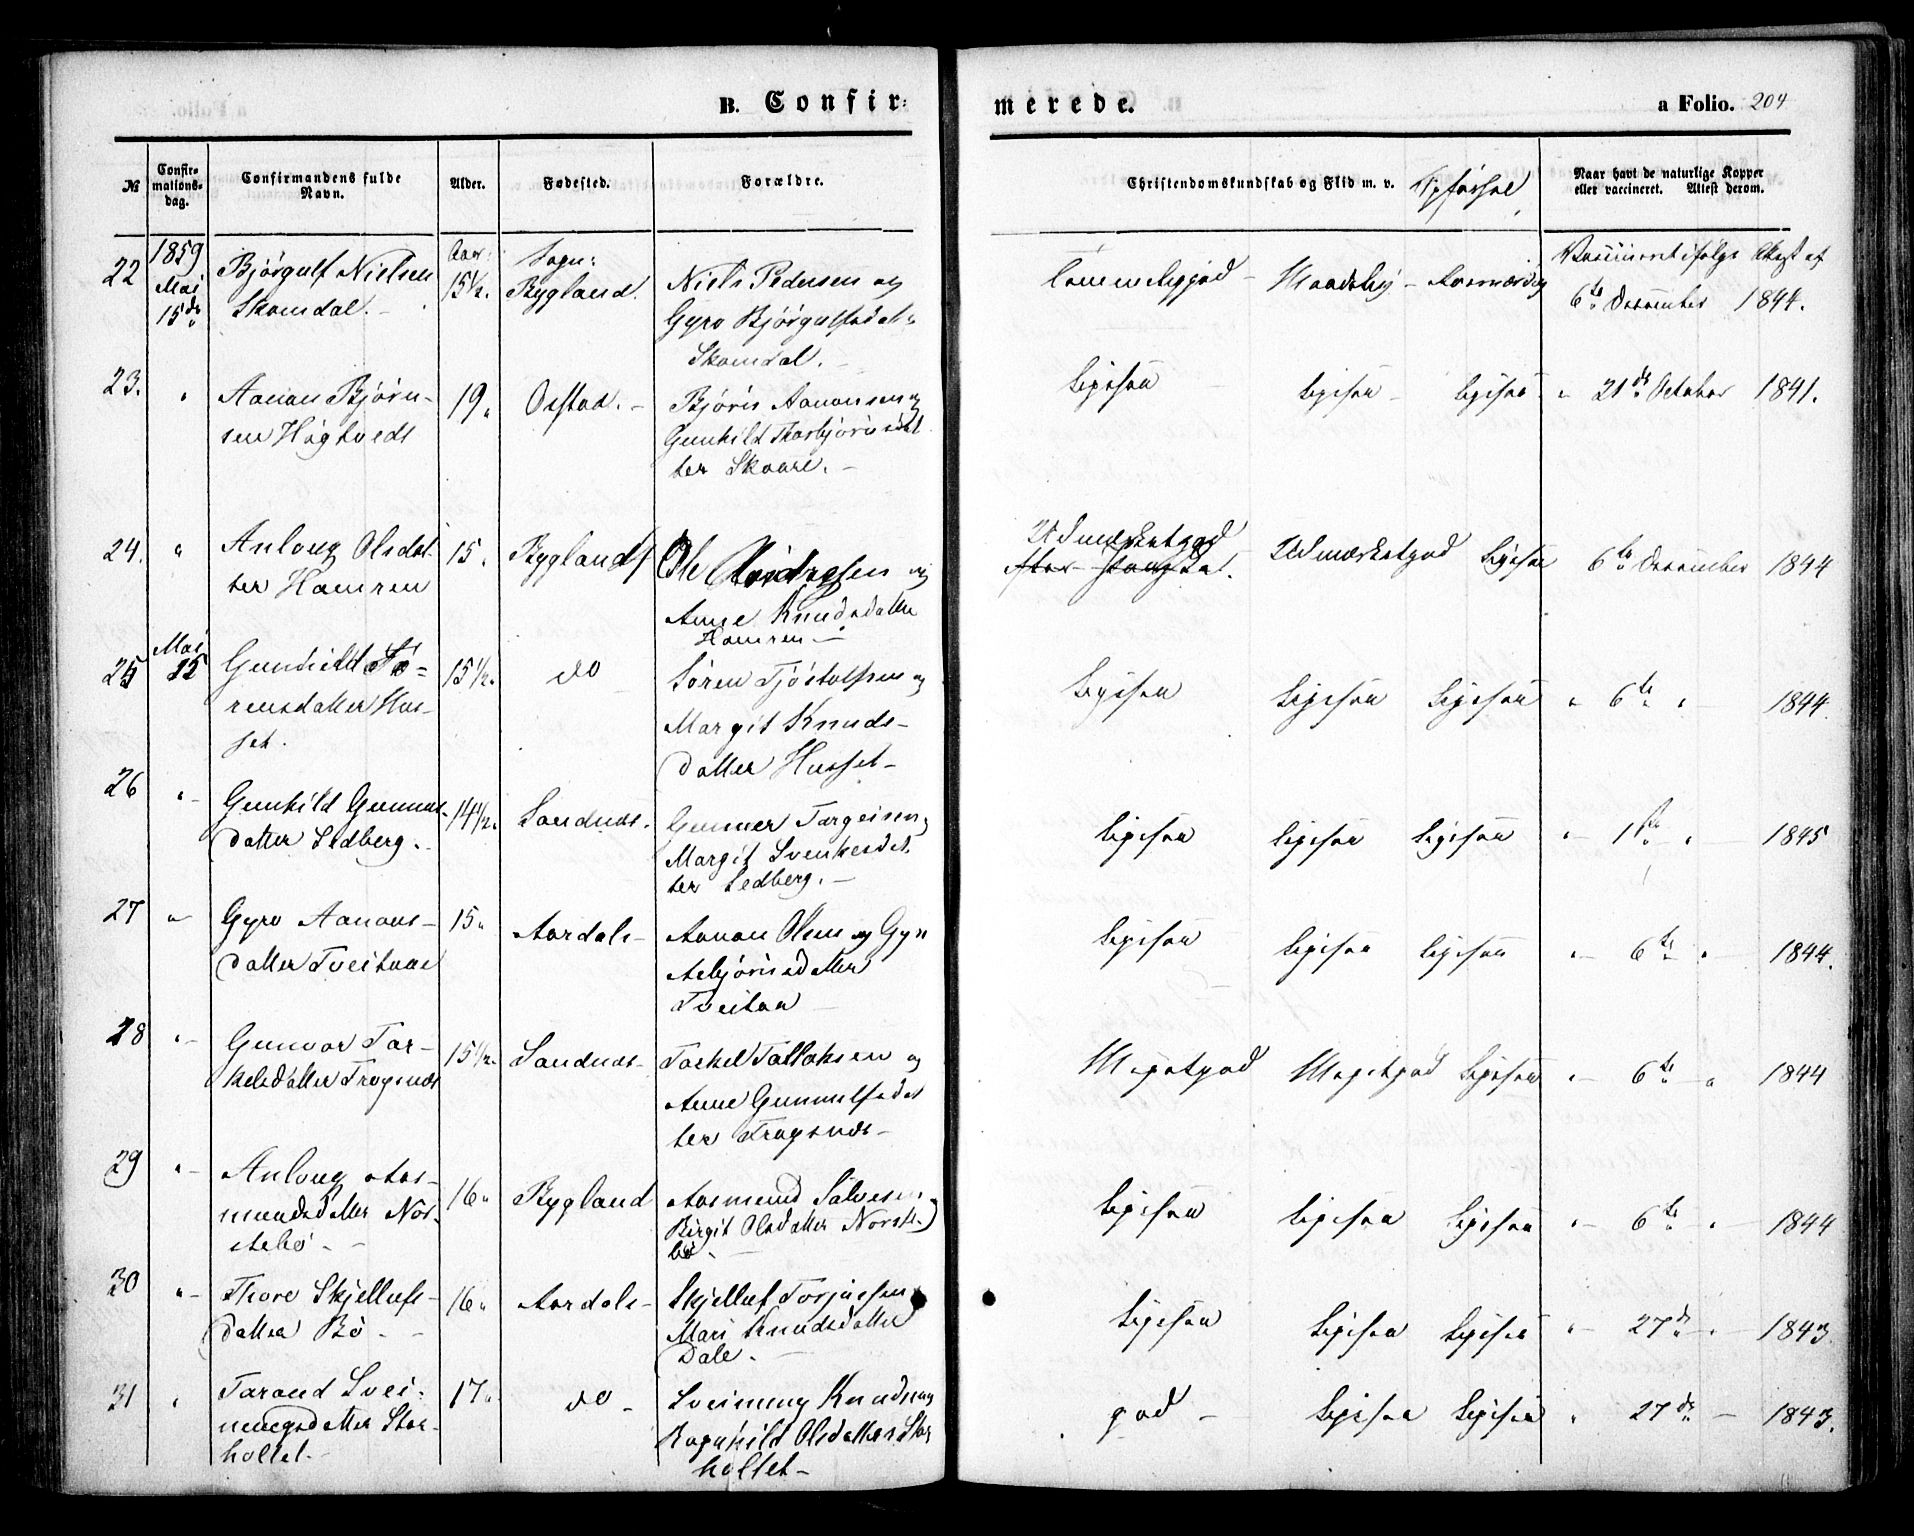 B. Confir:
merede.
a Folio. 204
№
Confir-
mations-
dag.
Confirmandens fulde
Navn.
Alder.
Fødested.
Forældre.
Christendomskundskab og Flid m. v.
Opførsel
Naar havt de naturlige Kopper
eller vaccineret. Attest derom.
22
1859
Mai
15de
Bjørgulf Nielsen
Skomdal. -
Aar:
15½.
Sogn:
Bygland.
Niels Pedersen og
Gyro Bjørgulfsdat.
Skomdal. -
Maadelig -
6te December 1844.
23.
"
Aanon Bjørn-
sen Høgtvedt
19"
Ostad. -
Bjørn Aanonsen og
Gunhild Thorbjørnsdat
ter Skaare. -
ligesaa
ligesaa -
ligesaa
" 21de October 1841.
24.
"
Anlaug Olsdat
ter Hamren
15.
Bygland
Ole og
Anne Knudsdatter
Hamren -
Udmærketgod
Udmærketgod
ligesaa
6te December 1844
25
Mai
15
Gunhild Sø-
rensdatter Hus-
set.
15½.
do
Søren Tjøstolfsen og
Margit Knuds-
datter Husset -
ligesaa
ligesaa
ligesaa
" 6te " 1844.
26
" -
Gunhild Gunnars-
datter Sedberg. -
14½.
Sandnæs.
Gunner Targeisen og
Margit Svenkesdat
ter Sedberg. -
ligesaa
ligesaa
ligesaa
" 1ste " 1845
27
"
Gyro Aanons-
datter Tveitaae
15"
Aardals -
Aanon Olsen og Gyro
Asbjørnsdatter
Tveitaa -
ligesaa
ligesaa
ligesaa
" 6te " 1844.
28
" -
Gunvor Tar-
kelsdatter Frogsnæs
15½.
Sandnæs -
Taekel Tallaksen og
Anne Gunnulfsdat
ter Frogsnæs -
Megetgod
Megetgod
ligesaa
" 6te " 1844
29
" -
Anlaug Aas-
mundsdatter Nor-
stebø. -
16"
Bygland
Aasmund Salvesen og
Birgit Olsdatter Norste-
bø. -
ligesaa
ligesaa
ligesaa
" 6te " 1844
30
" -
Thore Skjellufs-
datter Bø. -
16"
Aardals -
Skjelluf Torjussen og
Mari Knudsdatter
Dale. -
ligesaa
ligesaa
ligesaa
" 27de " 1843.
31
"
Tarand Svei-
nungsdatter Stor-
holtet. -
17"
do -
Sveinung Knudsen og
Ragnhild Olsdatter Stor
holtet -
god -
ligesaa
ligesaa
" 27de - 1843.